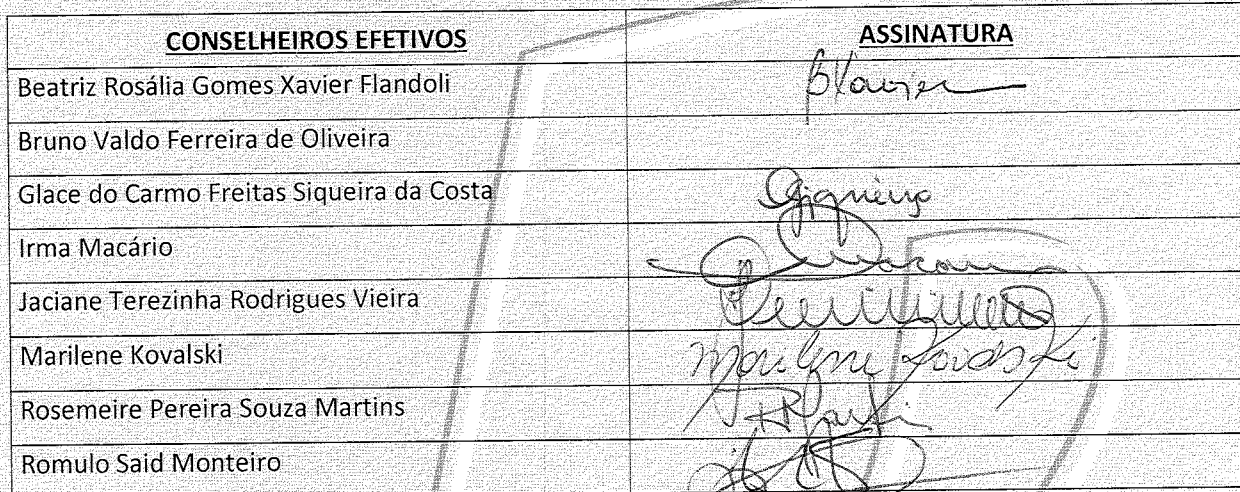 CONSELHEIROS EFETIVOS ASSINATURA
Beatriz Rosália Gomes Xavier Flandoli BXavier
Bruno Valdo Ferreira de Oliveira
Glace do Carmo Freitas Siqueira da Costa
Irma Macário
Jaciane Terezinha Rodrigues Vieira
Marilene Kovalski Marilene Kovalski
Rosemeire Pereira Souza Martins
Romulo Said Monteiro